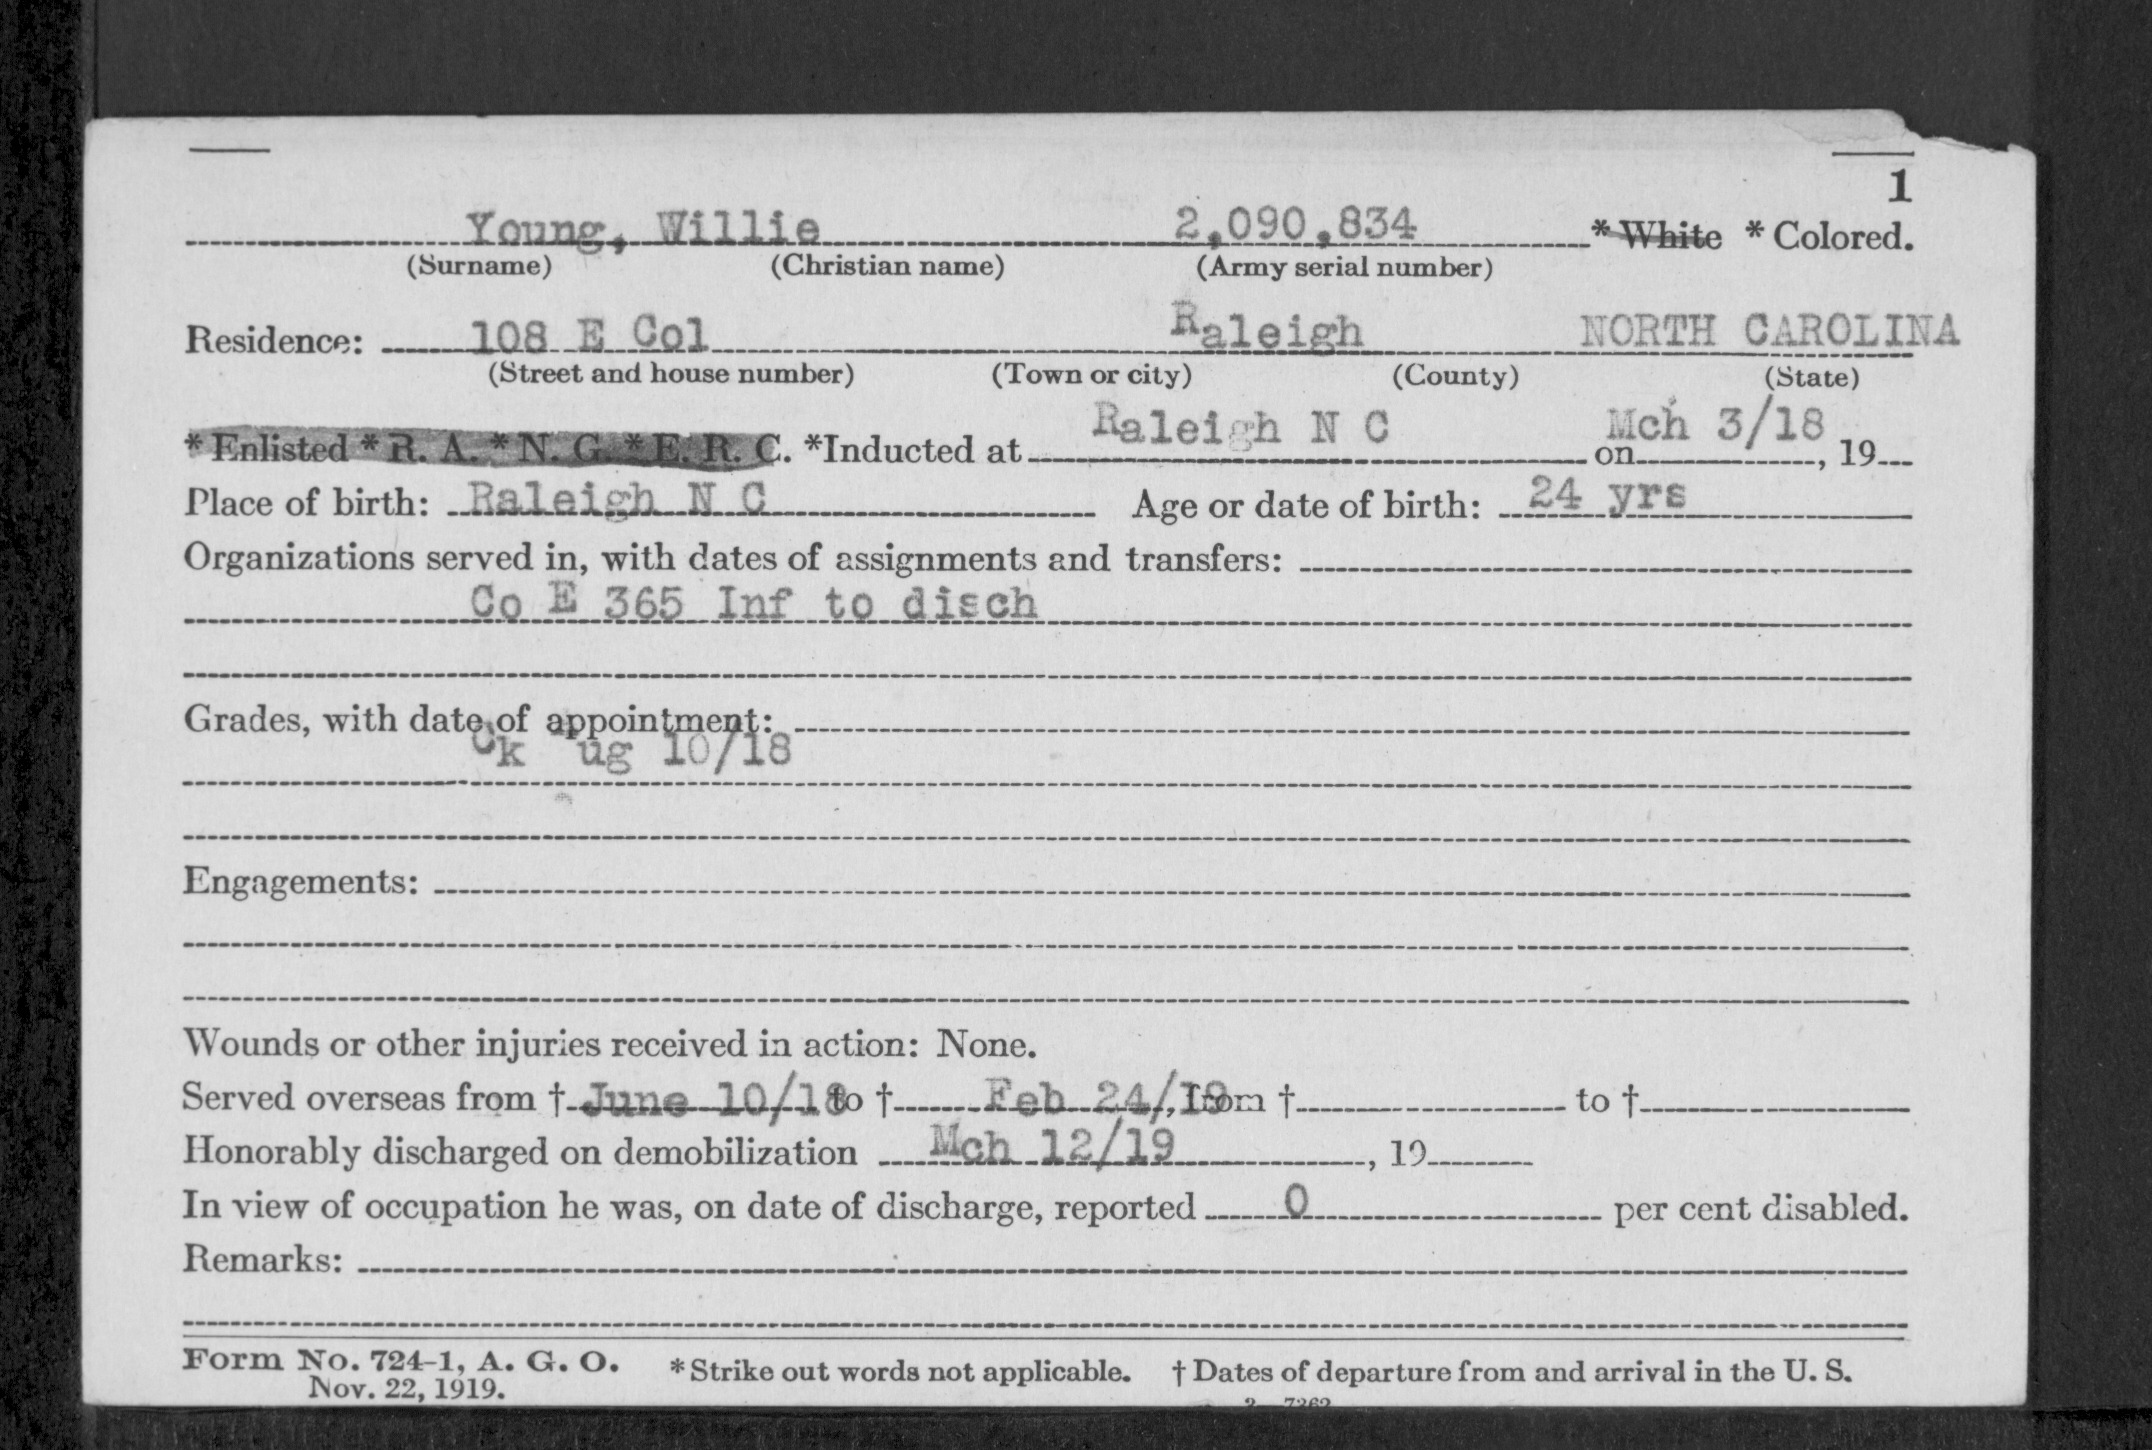 1
Young, Willie 2,090,834 * White * Colored.
(Surname) (Christian name) (Army serial number)
Residence: 108 E Col Raleigh NORTH CAROLINA
(Street and house number) (Town or city) (County) (State)
* Enlisted * R. A. * N. G. * E. R. C. *Inducted at Raleigh N C on Mch 3/18, 19
Place of birth: Raleigh N C Age or date of birth: 24 yrs
Organizations served in, with dates of assignments and transfers:
Co E 365 Inf to disch
Grades, with date of appointment:
Ck ug 10/18
Engagements:
Wounds or other injuries received in action: None.
Served overseas from † June 10/18 to † Feb 24/19, from † to †
Honorably discharged on demobilization Mch 12/19, 19
In view of occupation he was, on date of discharge, reported 0 per cent disabled.
Remarks:
Form No. 724-1, A. G. O. * Strike out words not applicable. † Dates of departure from and arrival in the U. S.
Nov. 22, 1919.